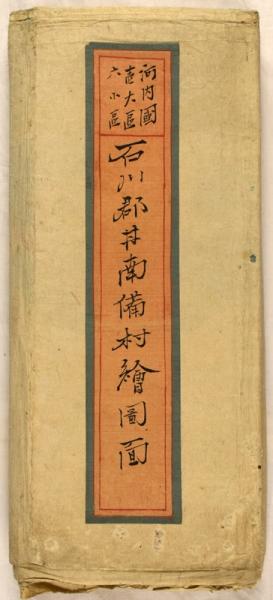 河内國
壹大區
六小區
石川郡甘南備村繪圖面